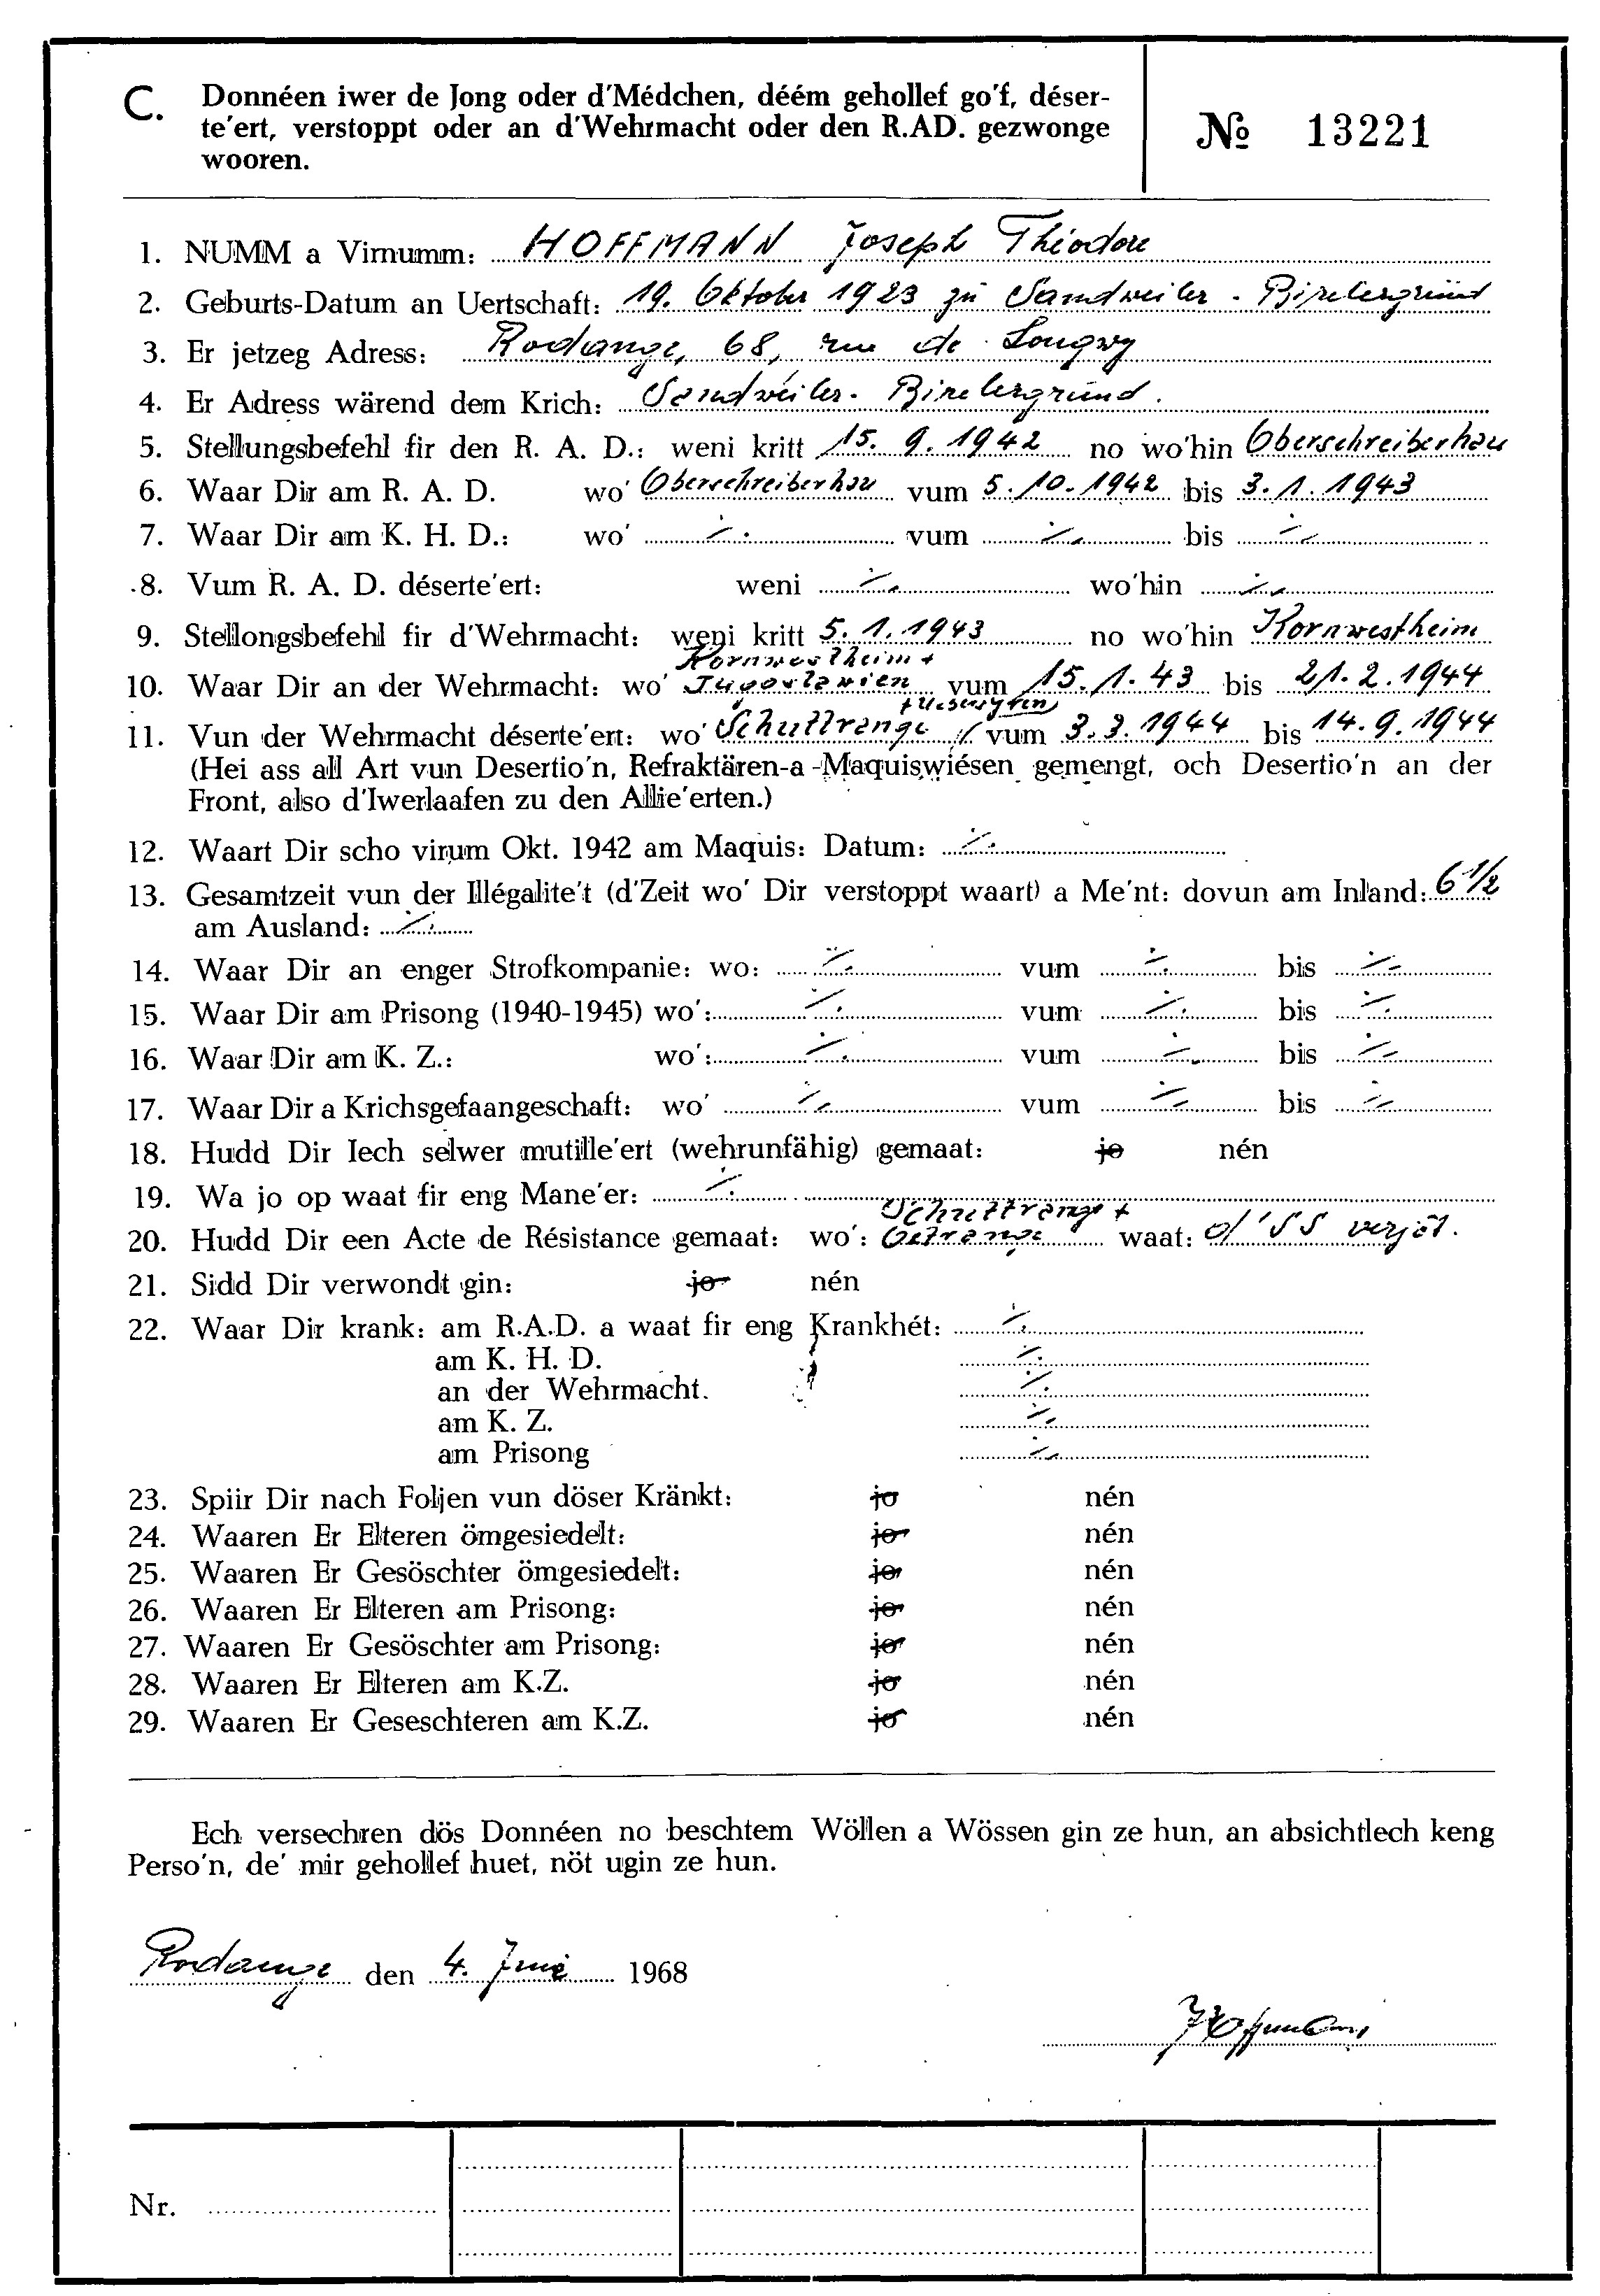 C. Donnéen iwer de Jong oder d'Médchen, déém gehollef go'f, déser-
te'ert, verstoppt oder an d'Wehrmacht oder den R.AD. gezwonge
wooren.
№ 13221
1. NUMM a Virnumm: HOFFMANN Joseph Théodore
2. Geburts-Datum an Uertschaft: 19. Oktober 1923 zu Sandweiler - Birelergrund
3. Er jetzeg Adress: Rodange, 68, rue de Longwy
4. Er Adress wärend dem Krich: Sandweiler - Birelergrund.
5. Stellungsbefehl fir den R. A. D.: weni kritt 15. 9. 1942 no wo'hin Oberschreiberhau
6. Waar Dir am R. A. D. wo' Oberschreiberhau vum 5. 10. 1942 bis 3. 1. 1943
7. Waar Dir am K. H. D.: wo' ./. vum ./. bis ./.
8. Vum R. A. D. déserte'ert: weni ./. wo'hin ./.
9. Stellongsbefehl fir d'Wehrmacht: weni kritt 5. 1. 1943 no wo'hin Kornwestheim
Kornwestheim +
10. Waar Dir an der Wehrmacht: wo' Jugoslawien vum 15. 1. 43 bis 21. 2. 1944
11. Vun der Wehrmacht déserte'ert: wo' Schuttrange vum 3. 3. 1944 bis 14. 9. 1944
(Hei ass all Art vun Desertio'n, Refraktären-a-Maquiswiésen gemengt, och Desertio'n an der
Front, also d'Iwerlaafen zu den Allie'erten.)
12. Waart Dir scho virum Okt. 1942 am Maquis: Datum: ./.
13. Gesamtzeit vun der Illégalite't (d'Zeit wo' Dir verstoppt waart) a Me'nt: dovun am Inland: 6 1/2
am Ausland: ./.
14. Waar Dir an enger Strofkompanie: wo: ./. vum ./. bis ./.
15. Waar Dir am Prisong (1940-1945) wo': ./. vum ./. bis ./.
16. Waar Dir am K. Z.: wo': ./. vum ./. bis ./.
17. Waar Dir a Krichsgefaangeschaft: wo' ./. vum ./. bis ./.
18. Hudd Dir Iech selwer mutille'ert (wehrunfähig) gemaat: jo nén
19. Wa jo op waat fir eng Mane'er: ./.
Schuttrange +
20. Hudd Dir een Acte de Résistance gemaat: wo': Oetrange waat: d'SS verjét.
21. Sidd Dir verwondt gin: jo nén
22. Waar Dir krank: am R.A.D. a waat fir eng Krankhét: ./.
am K. H. D. ./.
an der Wehrmacht. ./.
am K. Z. ./.
am Prisong ./.
23. Spiir Dir nach Foljen vun döser Kränkt: jo nén
24. Waaren Er Elteren ömgesiedelt: jo nén
25. Waaren Er Gesöschter ömgesiedelt: jo nén
26. Waaren Er Elteren am Prisong: jo nén
27. Waaren Er Gesöschter am Prisong: jo nén
28. Waaren Er Elteren am K.Z. jo nén
29. Waaren Er Geseschteren am K.Z. jo nén
Ech versechren dös Donnéen no beschtem Wöllen a Wössen gin ze hun, an absichtlech keng
Perso'n, de' mir gehollef huet, nöt ugin ze hun.
Rodange den 4. Juni 1968
JHoffmann
Nr.